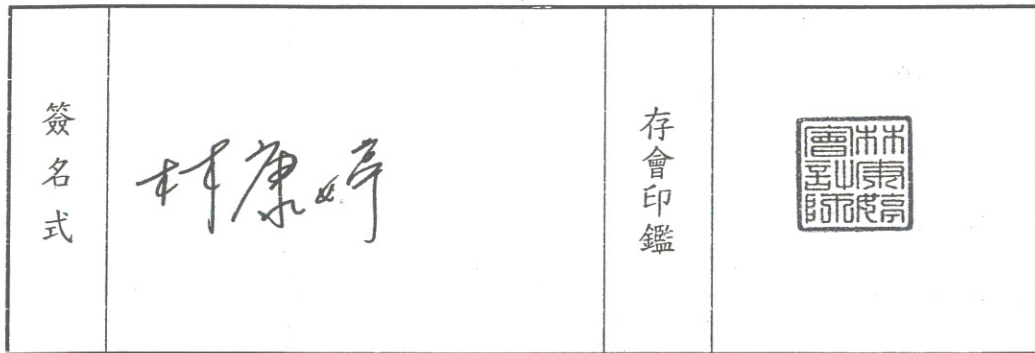 簽名式
林康婷
存會印鑑
林康婷
會計師